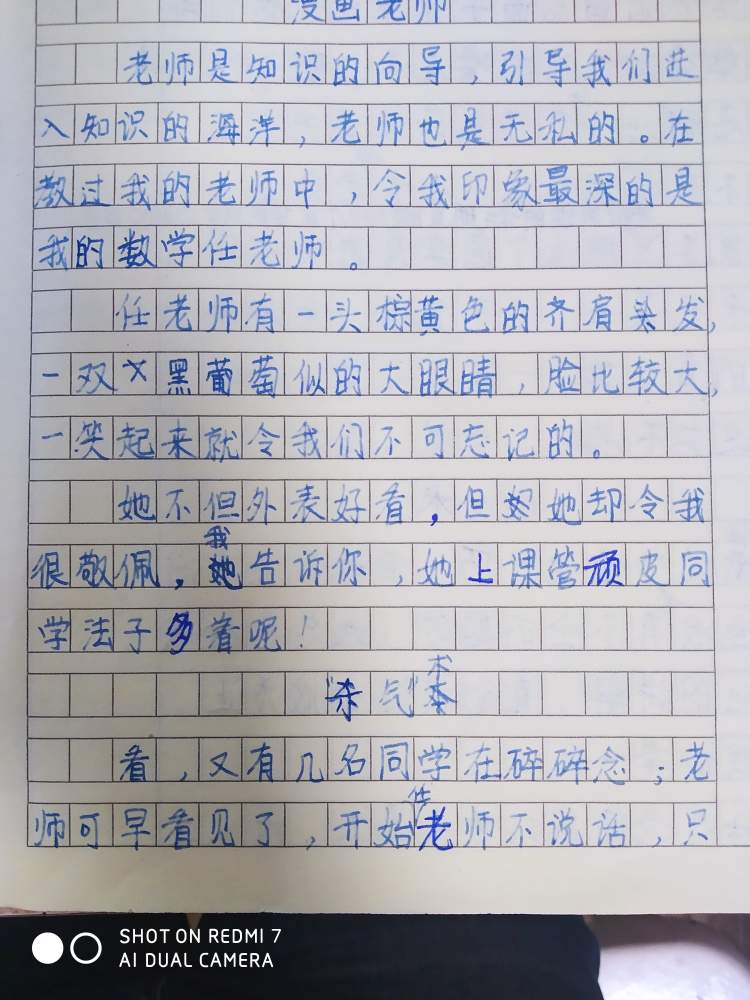 漫画老师
老师是知识的向导，引导我们进
入知识的海洋，老师也是无私的。在
教过我的老师中，令我印象最深的是
我的数学任老师。
任老师有一头棕黄色的齐肩头发，
一双黑葡萄似的大眼睛，脸比较大，
一笑起来就令我们不可忘记的。
她不但外表好看，但她却令我
很敬佩，我告诉你，她上课管顽皮同
学法子多着呢！
"杀气"本
看，又有几名同学在碎碎念；老
师可早看见了，开始老师不说话，只
SHOT ON REDMI 7
AI DUAL CAMERA